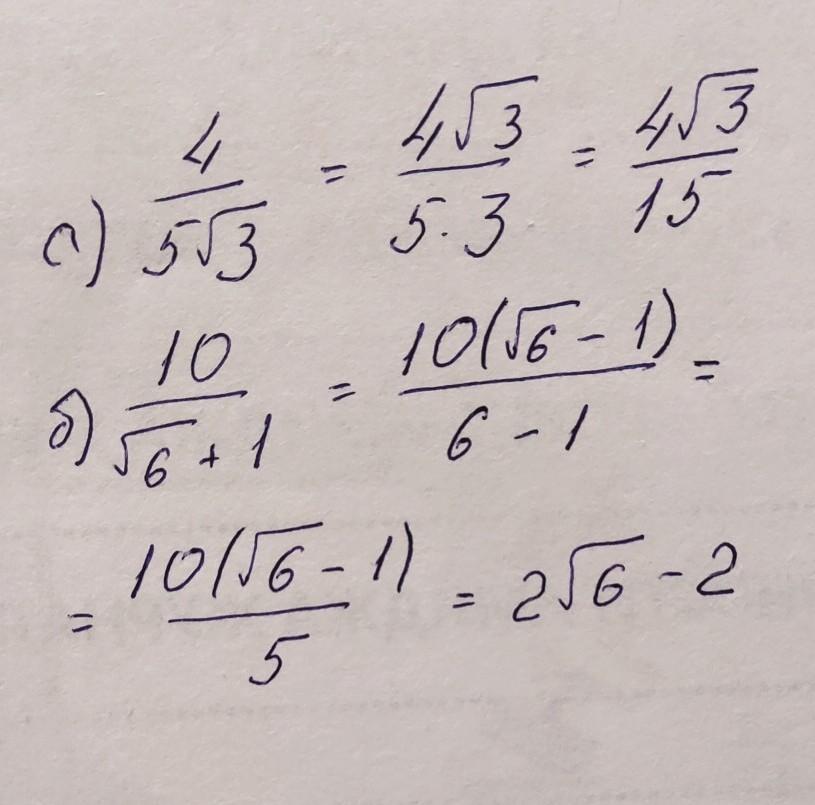 а) 4/(5√3) = 4√3/(5·3) = 4√3/15
б) 10/(√6+1) = 10(√6-1)/(6-1) =
= 10(√6-1)/5 = 2√6-2